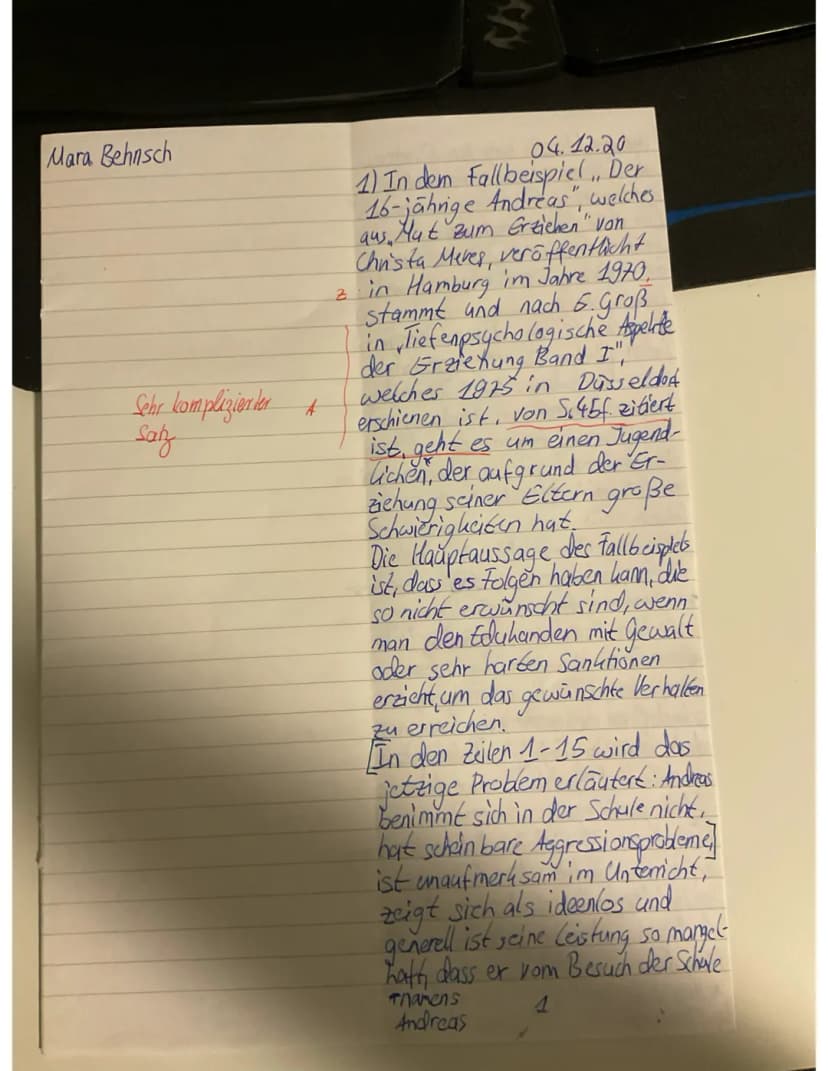 Mara Behnsch
04.12.20
1) In dem Fallbeispiel „Der
16-jährige Andreas", welches
aus „Mut zum Erziehen" von
Christa Meves, veröffentlicht
z in Hamburg im Jahre 1970,
stammt und nach E. Groß
in „Tiefenpsychologische Aspekte
der Erziehung Band I",
welches 1975 in Düsseldorf
Sehr komplizierter A
Satz
erschienen ist, von S.45f. zitiert
ist, geht es um einen Jugend-
lichen*, der aufgrund der Er-
ziehung seiner Eltern große
Schwierigkeiten hat.
Die Hauptaussage des Fallbeispiels
ist, dass es Folgen haben kann, die
so nicht erwünscht sind, wenn
man den Edukanden mit Gewalt
oder sehr harten Sanktionen
erzieht, um das gewünschte Verhalten
zu erreichen.
[In den Zeilen 1-15 wird das
jetzige Problem erläutert: Andreas
benimmt sich in der Schule nicht,
hat scheinbare Aggressionsprobleme,]
ist unaufmerksam im Unterricht,
zeigt sich als ideenlos und
generell ist seine Leistung so mangel-
haft, dass er vom Besuch der Schule
*namens
Andreas
1